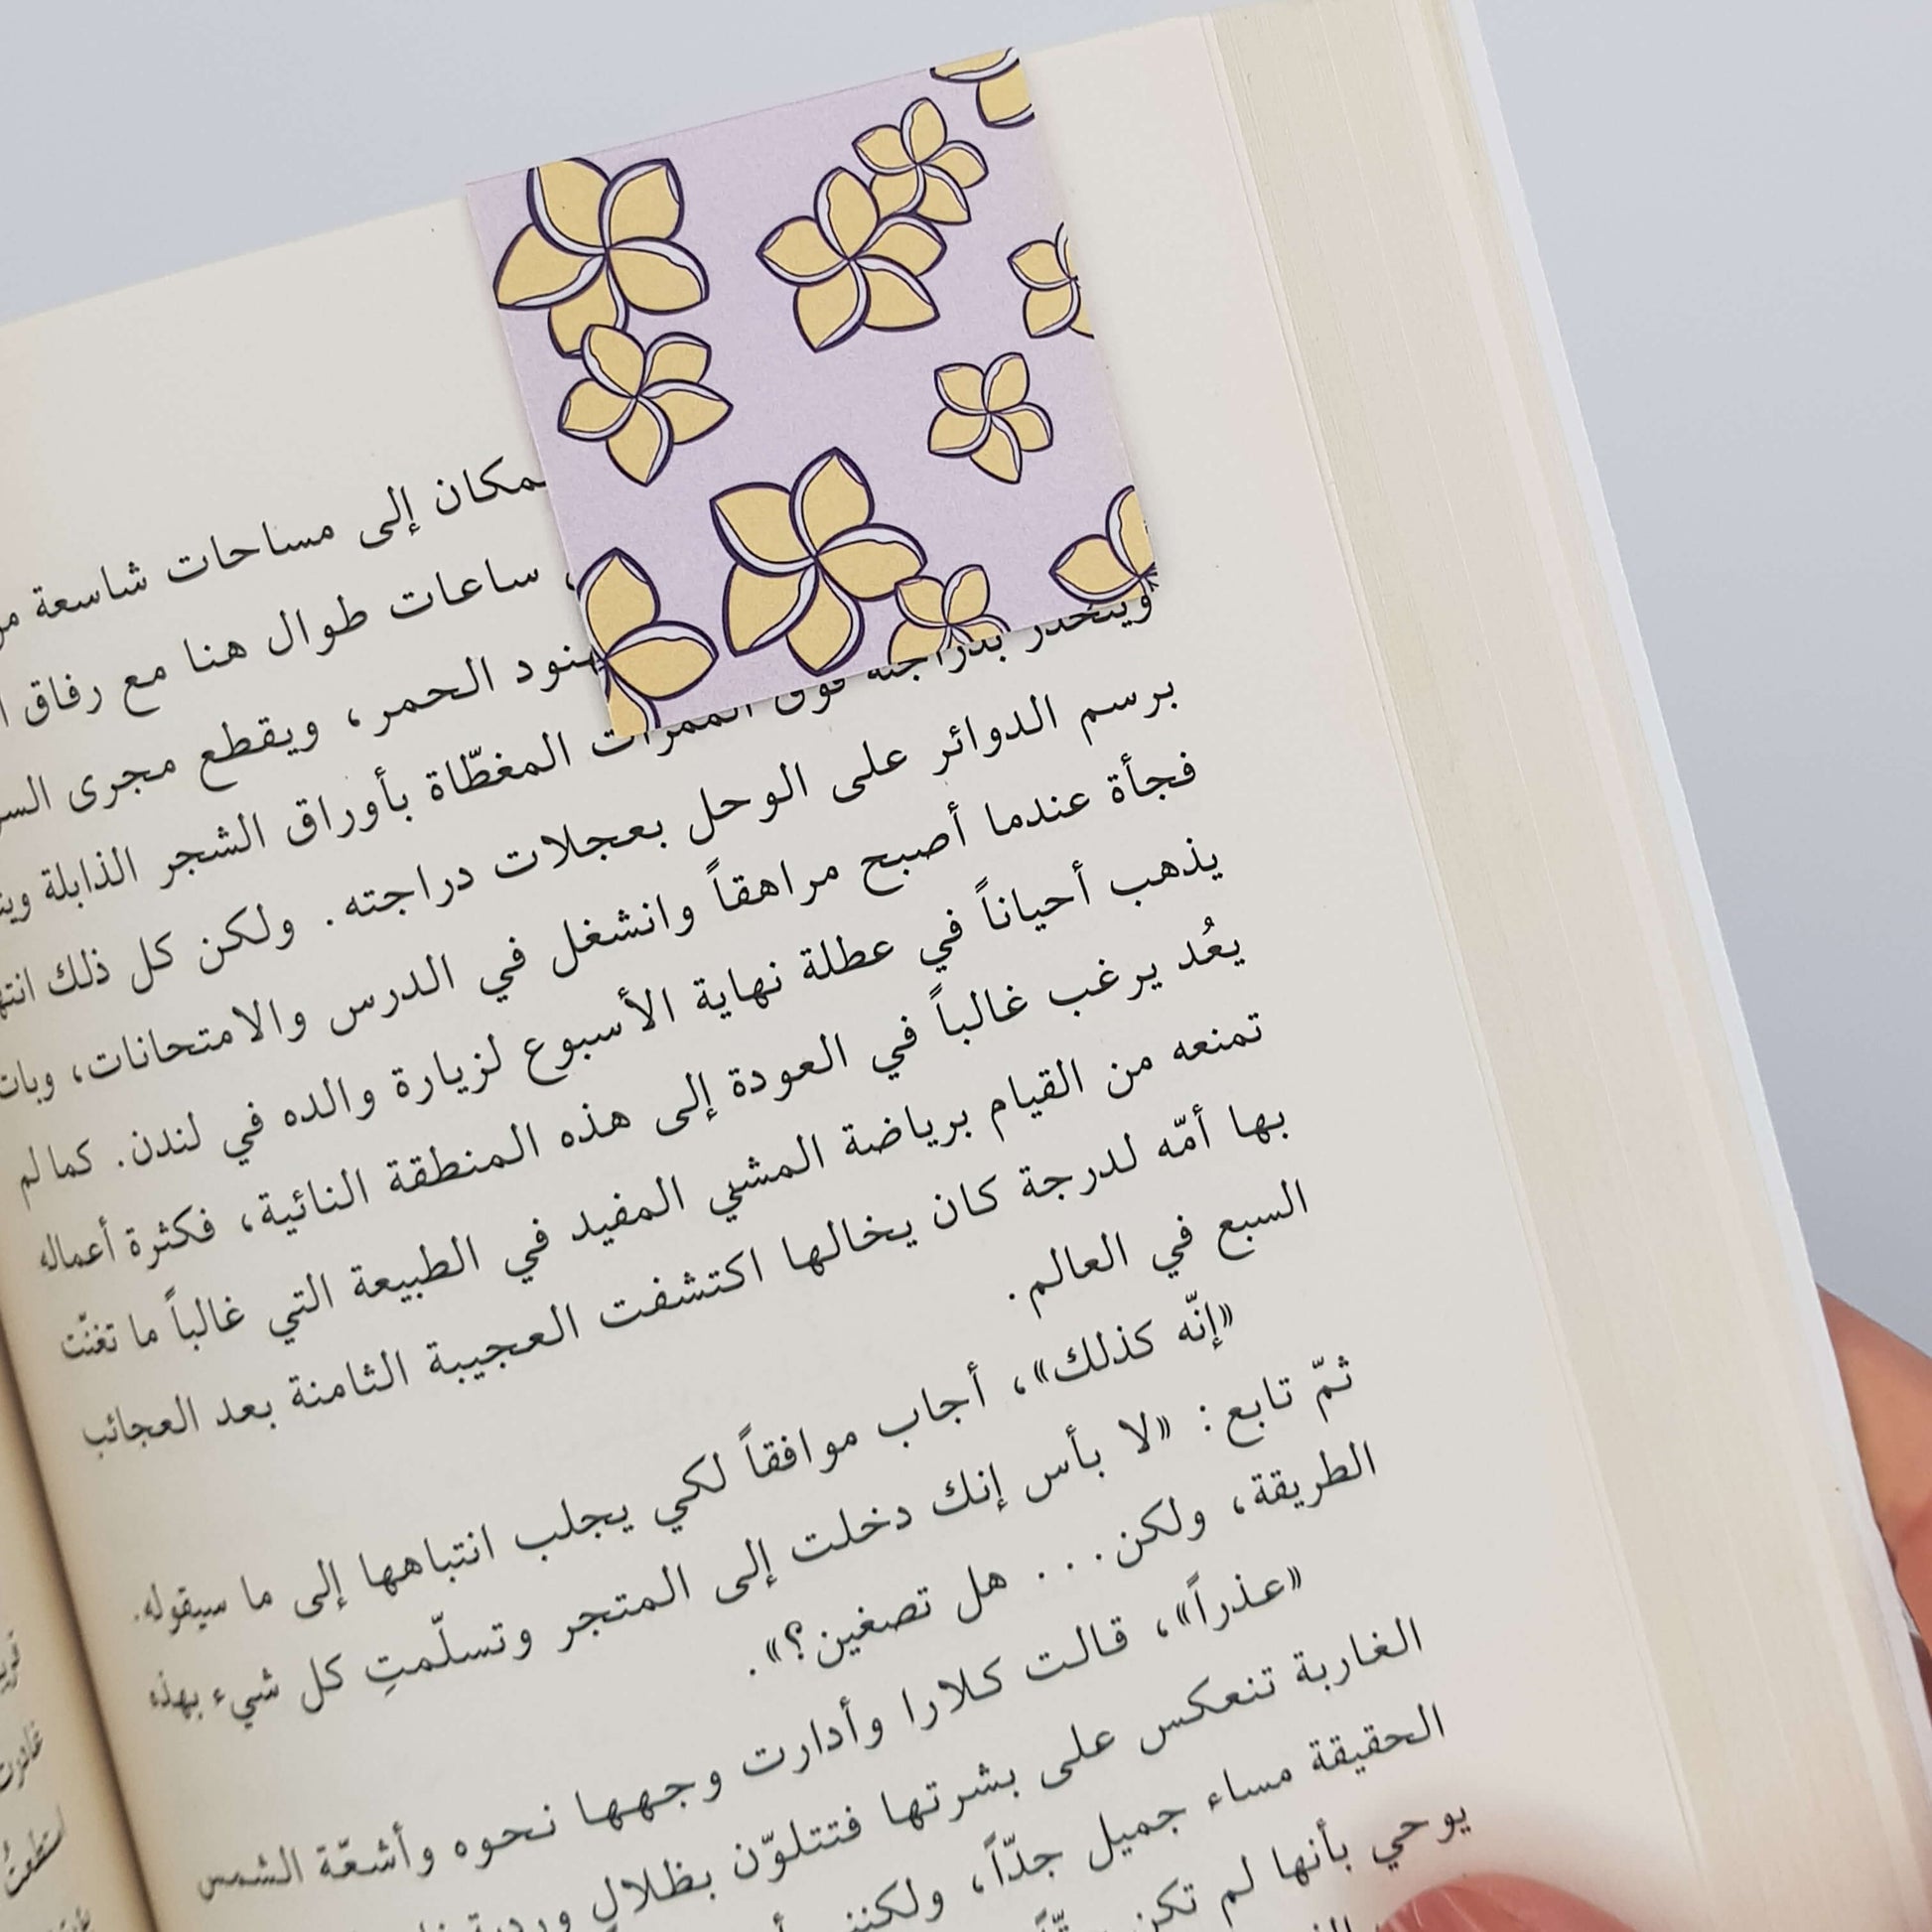 مكان إلى مساحات شاسعة
، ساعات طوال هنا مع رفاق
الحمر، ويقطع مجرى
وينحدر بدراجته فوق الممرات المغطّاة بأوراق الشجر الذابلة
برسم الدوائر على الوحل بعجلات دراجته. ولكن كل ذلك
فجأة عندما أصبح مراهقاً وانشغل في الدرس والامتحانات، وبات
يذهب أحياناً في عطلة نهاية الأسبوع لزيارة والده في لندن. كما لم
يعُد يرغب غالباً في العودة إلى هذه المنطقة النائية، فكثرة أعماله
تمنعه من القيام برياضة المشي المفيد في الطبيعة التي غالباً ما تغنّت
بها أمّه لدرجة كان يخالها اكتشفت العجيبة الثامنة بعد العجائب
السبع في العالم.
«إنّه كذلك»، أجاب موافقاً لكي يجلب انتباهها إلى ما سيقوله.
ثمّ تابع: «لا بأس إنك دخلت إلى المتجر وتسلّمتِ كل شيء بهذه
الطريقة، ولكن... هل تصغين؟».
«عذراً»، قالت كلارا وأدارت وجهها نحوه وأشعّة الشمس
الغاربة تنعكس على بشرتها فتتلوّن بظلالٍ وردية
الحقيقة مساء جميل جدّاً، ولكنني
يوحي بأنها لم تكن